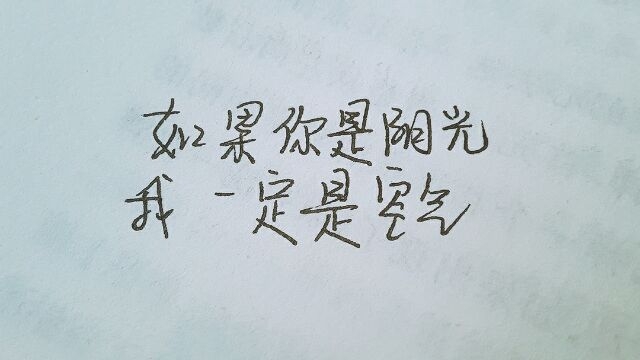 如果你是阳光
我一定是空气